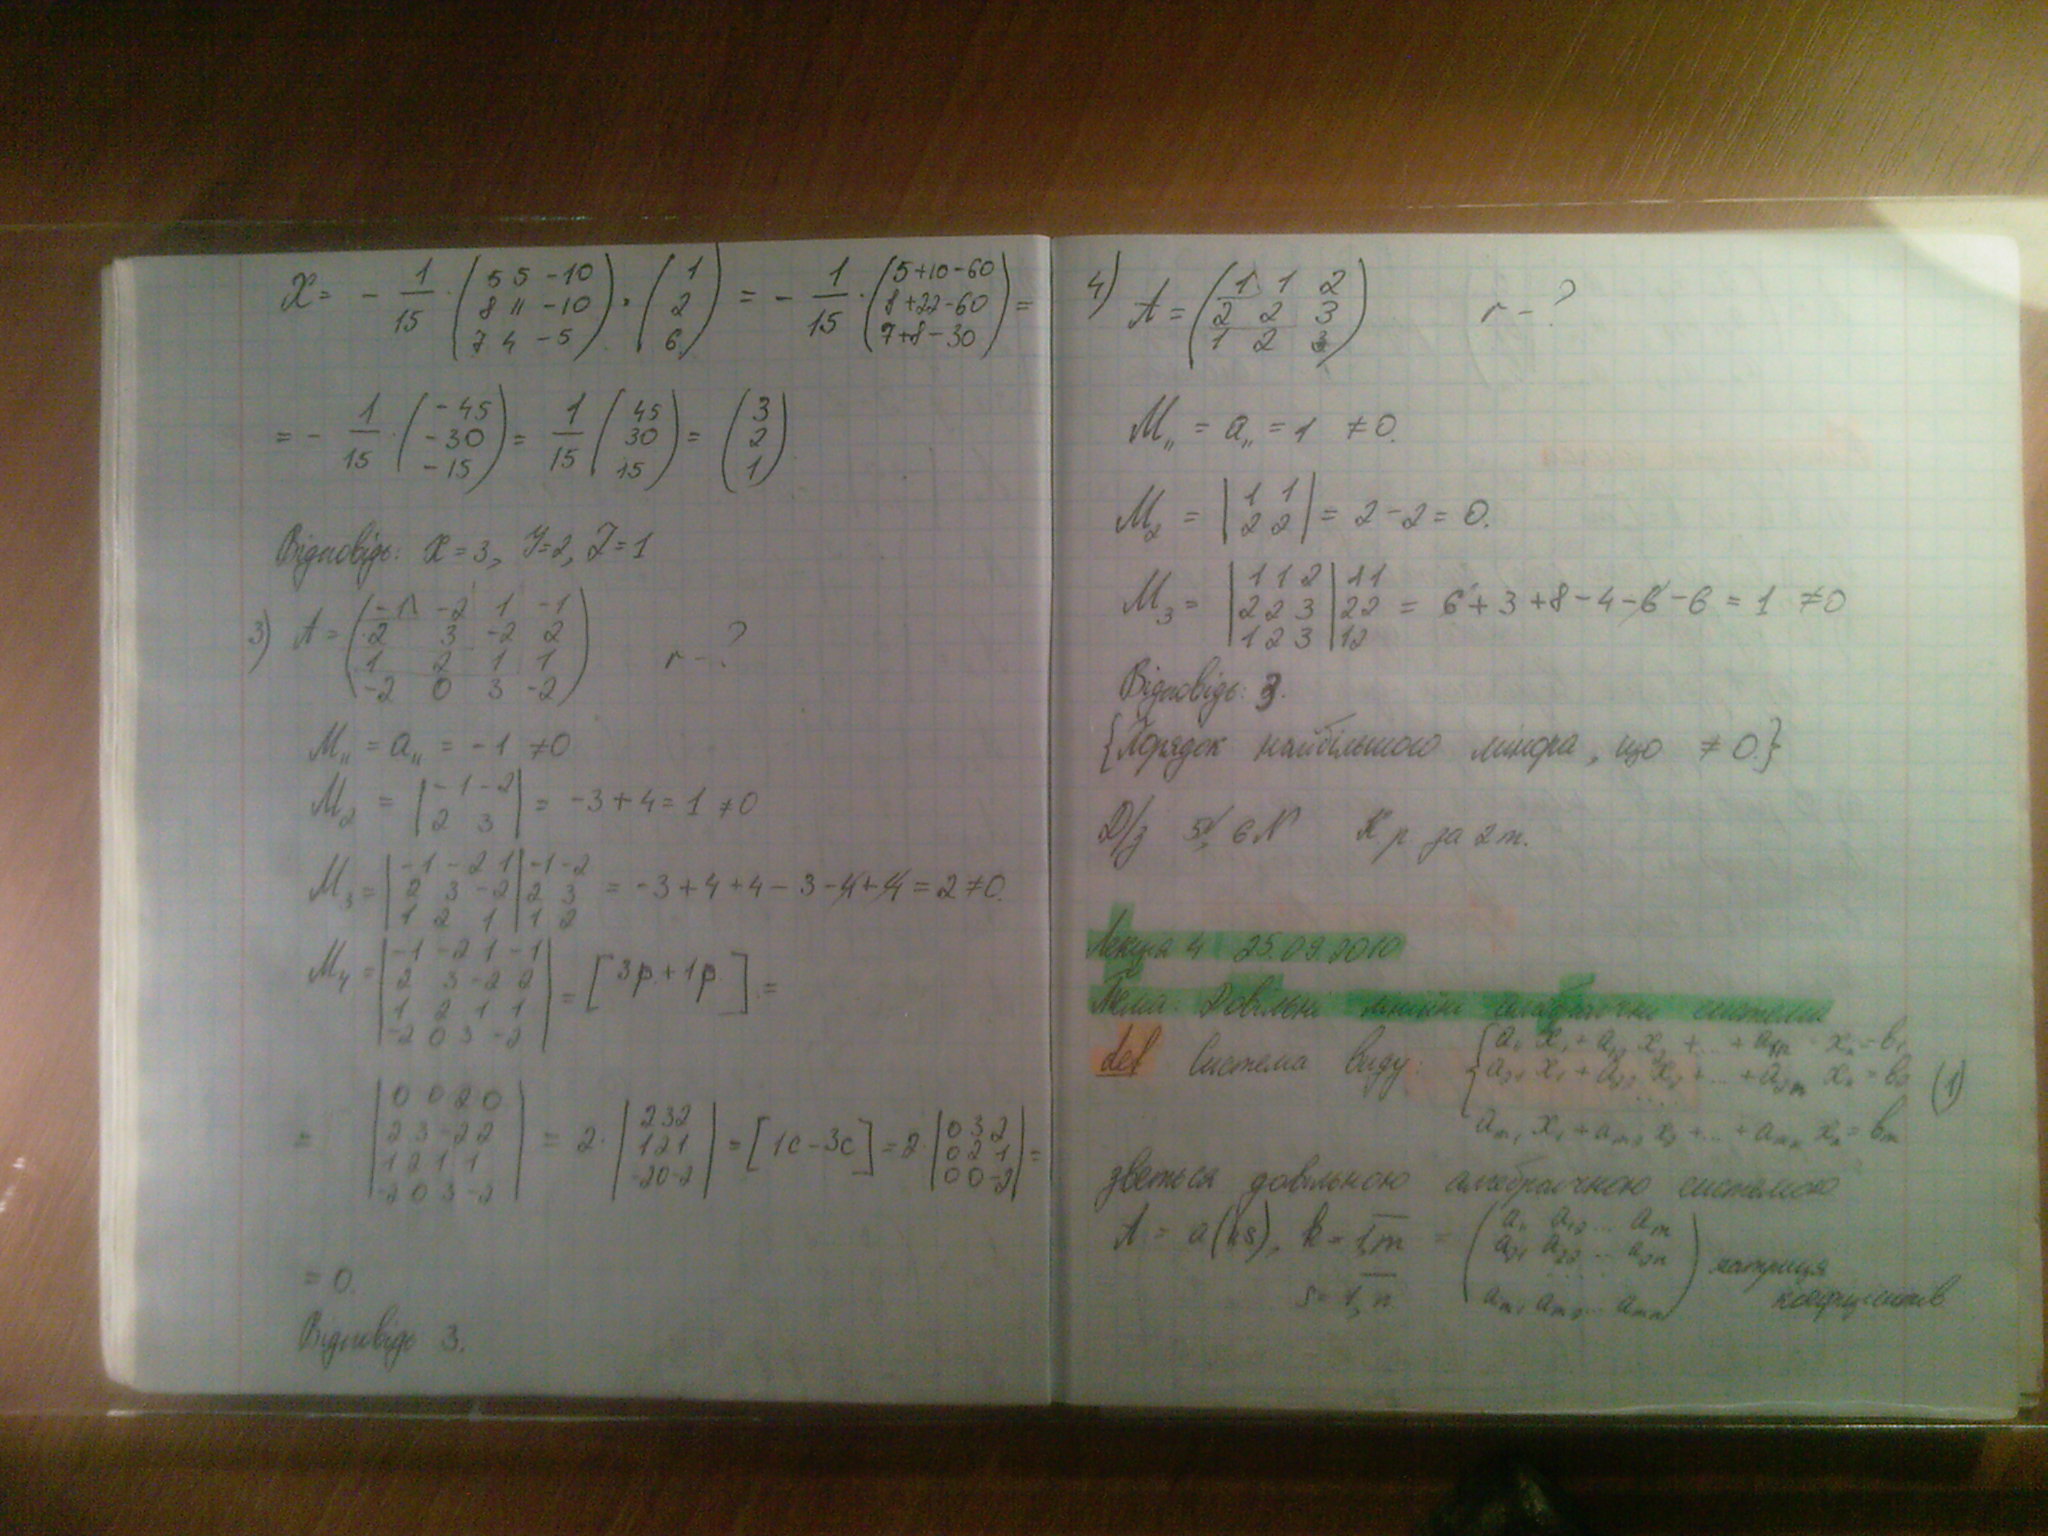 X = - 1/15 · (5 5 -10; 8 11 -10; 7 4 -5) · (1; 2; 6) = - 1/15 · (5+10-60; 8+22-60; 7+8-30) =
= - 1/15 · (-45; -30; -15) = 1/15 (45; 30; 15) = (3; 2; 1)
Відповідь: X=3, Y=2, Z=1
3) A = (-1 -2 1 -1; 2 3 -2 2; 1 2 1 1; -2 0 3 -2) r - ?
M₁₁ = a₁₁ = -1 ≠0
M₂ = |-1 -2; 2 3| = -3+4=1 ≠0
M₃ = |-1 -2 1; 2 3 -2; 1 2 1| -1 -2; 2 3; 1 2 = -3+4+4-3-4+4=2≠0.
M₄ = |-1 -2 1 -1; 2 3 -2 2; 1 2 1 1; -2 0 3 -2| = [3р.+1р.] =
= |0 0 2 0; 2 3 -2 2; 1 2 1 1; -2 0 3 -2| = 2·|2 3 2; 1 2 1; -2 0 -2| = [1с-3с] = 2·|0 3 2; 0 2 1; 0 0 -2| =
= 0.
Відповідь 3.
4) A = (1 1 2; 2 2 3; 1 2 3) r - ?
M₁₁ = a₁₁ = 1 ≠0.
M₂ = |1 1; 2 2| = 2-2= 0.
M₃ = |1 1 2; 2 2 3; 1 2 3| 1 1; 2 2; 1 2 = 6+3+8-4-6-6=1 ≠0
Відповідь: 3.
{Порядок найбільшого мінора, що ≠0.}
Д/з 5N 6N К.р за 2 т.
Лекція 4 25.09.2010
Тема: Довільні лінійні алгебраїчні системи
def Система виду: {a₁₁ x₁ + a₁₂ x₂ + ... + a₁ₙ xₙ = b₁
a₂₁ x₁ + a₂₂ x₂ + ... + a₂ₙ xₙ = b₂ (1)
...
aₘ₁ x₁ + aₘ₂ x₂ + ... + aₘₙ xₙ = bₘ
зветься довільною алгебраїчною системою
A = a(ks), k = 1,m = (a₁₁ a₁₂ ... a₁ₙ; a₂₁ a₂₂ ... a₂ₙ; ... aₘ₁ aₘ₂ ... aₘₙ) матриця
s = 1,n коефіцієнтів